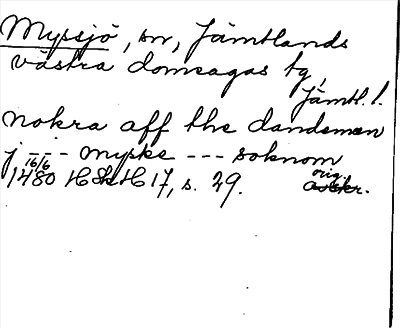 Myssjö, sn, Jämtlands
västra domsagas tg,
Jämtl. l.
nokra aff the dandemen
j --- myske --- soknom
16/6 orig.
1480 HSH 17, s. 29. avskr.